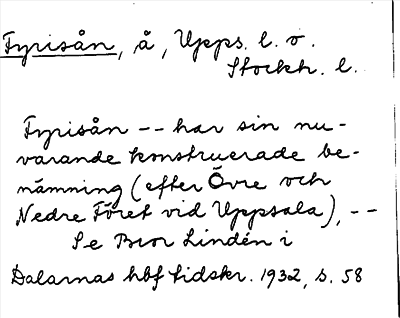 Fyrisån, å, Upps. l. o.
Stockh. l.
Fyrisån -- har sin nu-
varande konstruerade be-
nämning (efter Övre och
Nedre Föret vid Uppsala), --
Se Bror Lindén i
Dalarnas hbf tidskr. 1932, s. 58